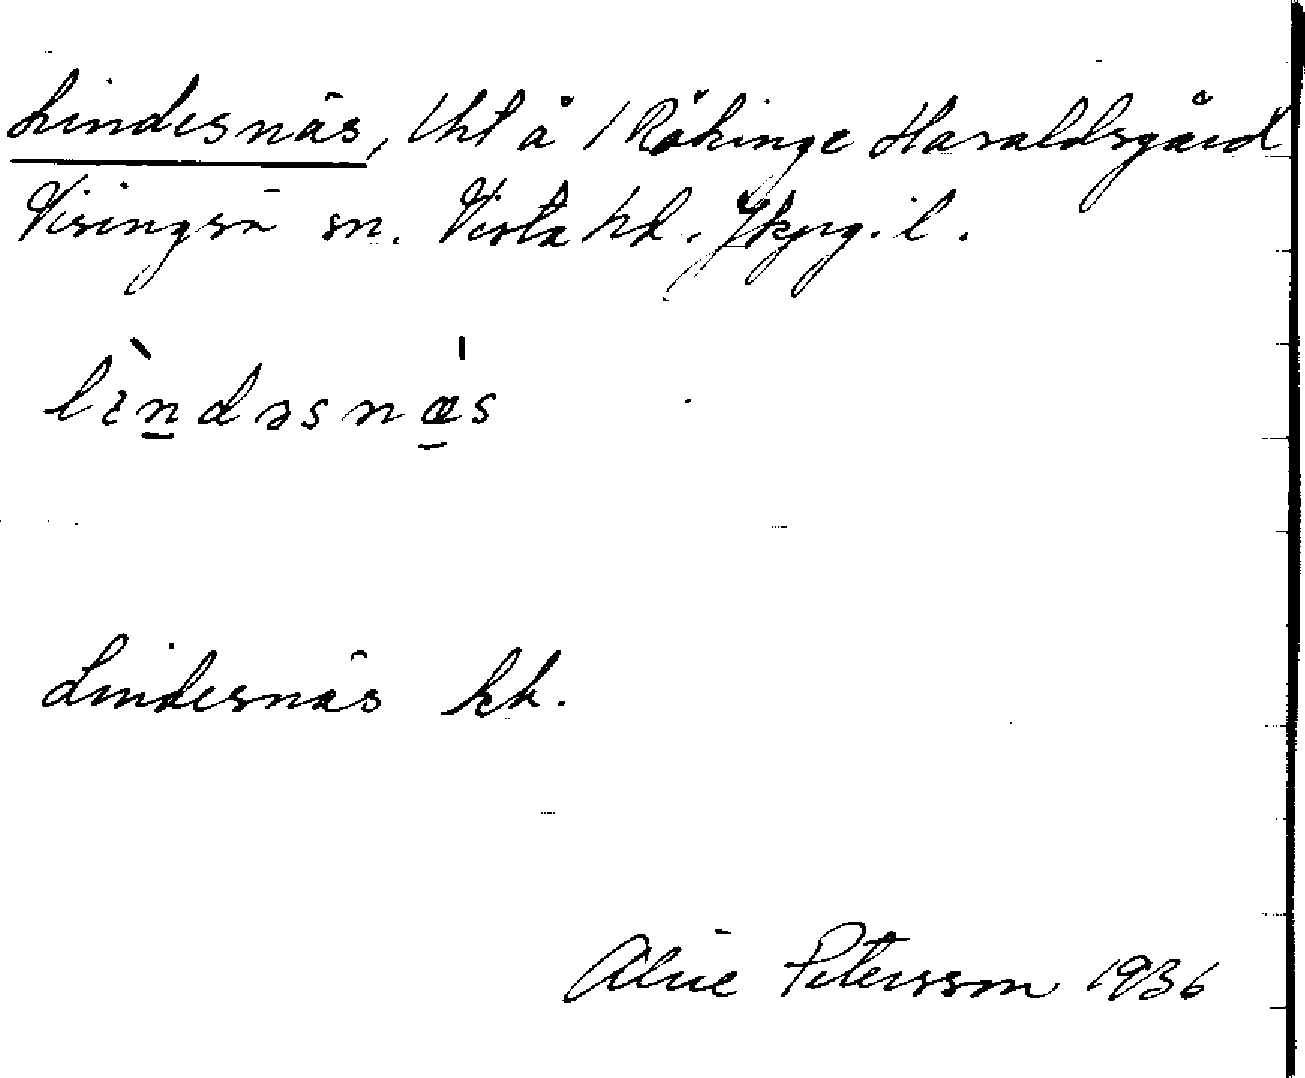 Lindesnäs, lht å 1 Rökinge Haraldsgård
Visingsö sn. Vista hd. Jkpg. l.
lìndəsnæ̀s
Lindesnäs hk.
Alice Petersson 1936